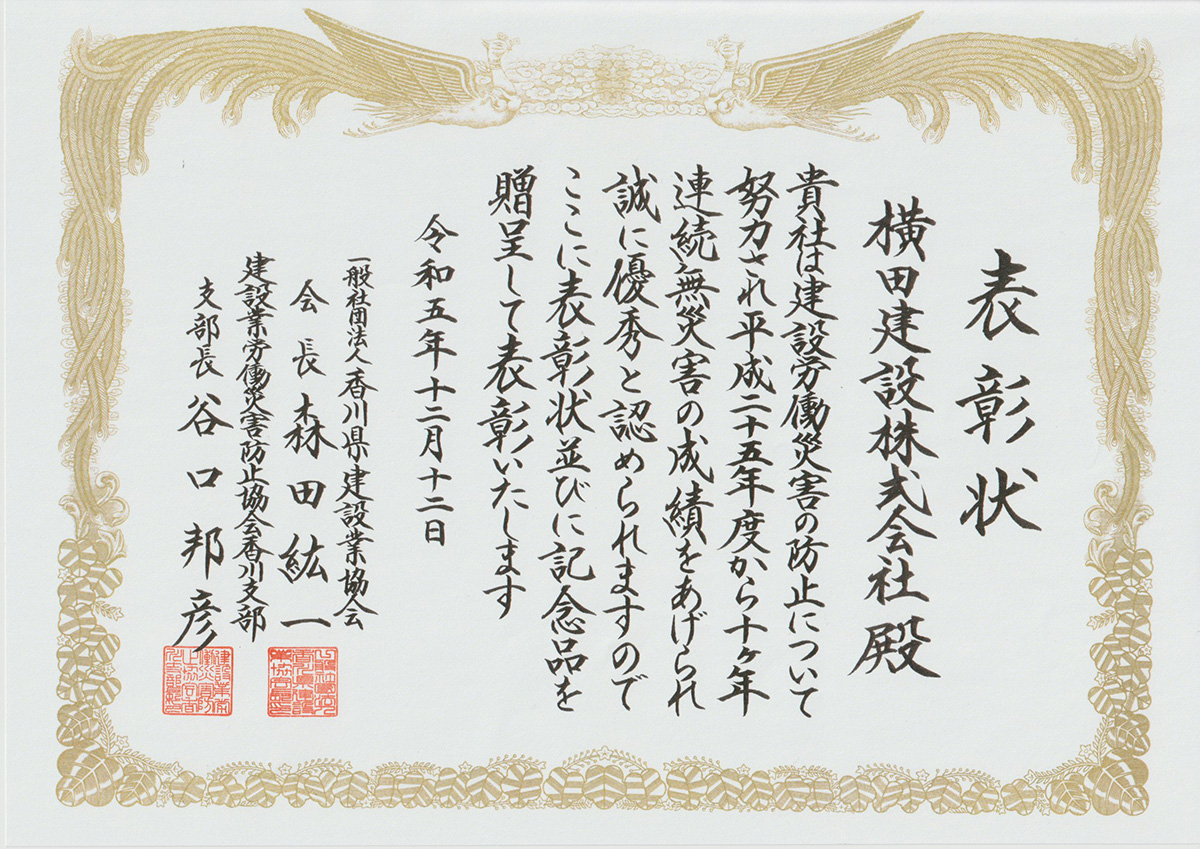 表彰状
横田建設株式会社殿
貴社は建設労働災害の防止について
努力され平成二十五年度から十ヶ年
連続無災害の成績をあげられ
誠に優秀と認められますので
ここに表彰状並びに記念品を
贈呈して表彰いたします
令和五年十二月十二日
一般社団法人香川県建設業協会
会長森田紘一
建設業労働災害防止協会香川支部
支部長谷口邦彦